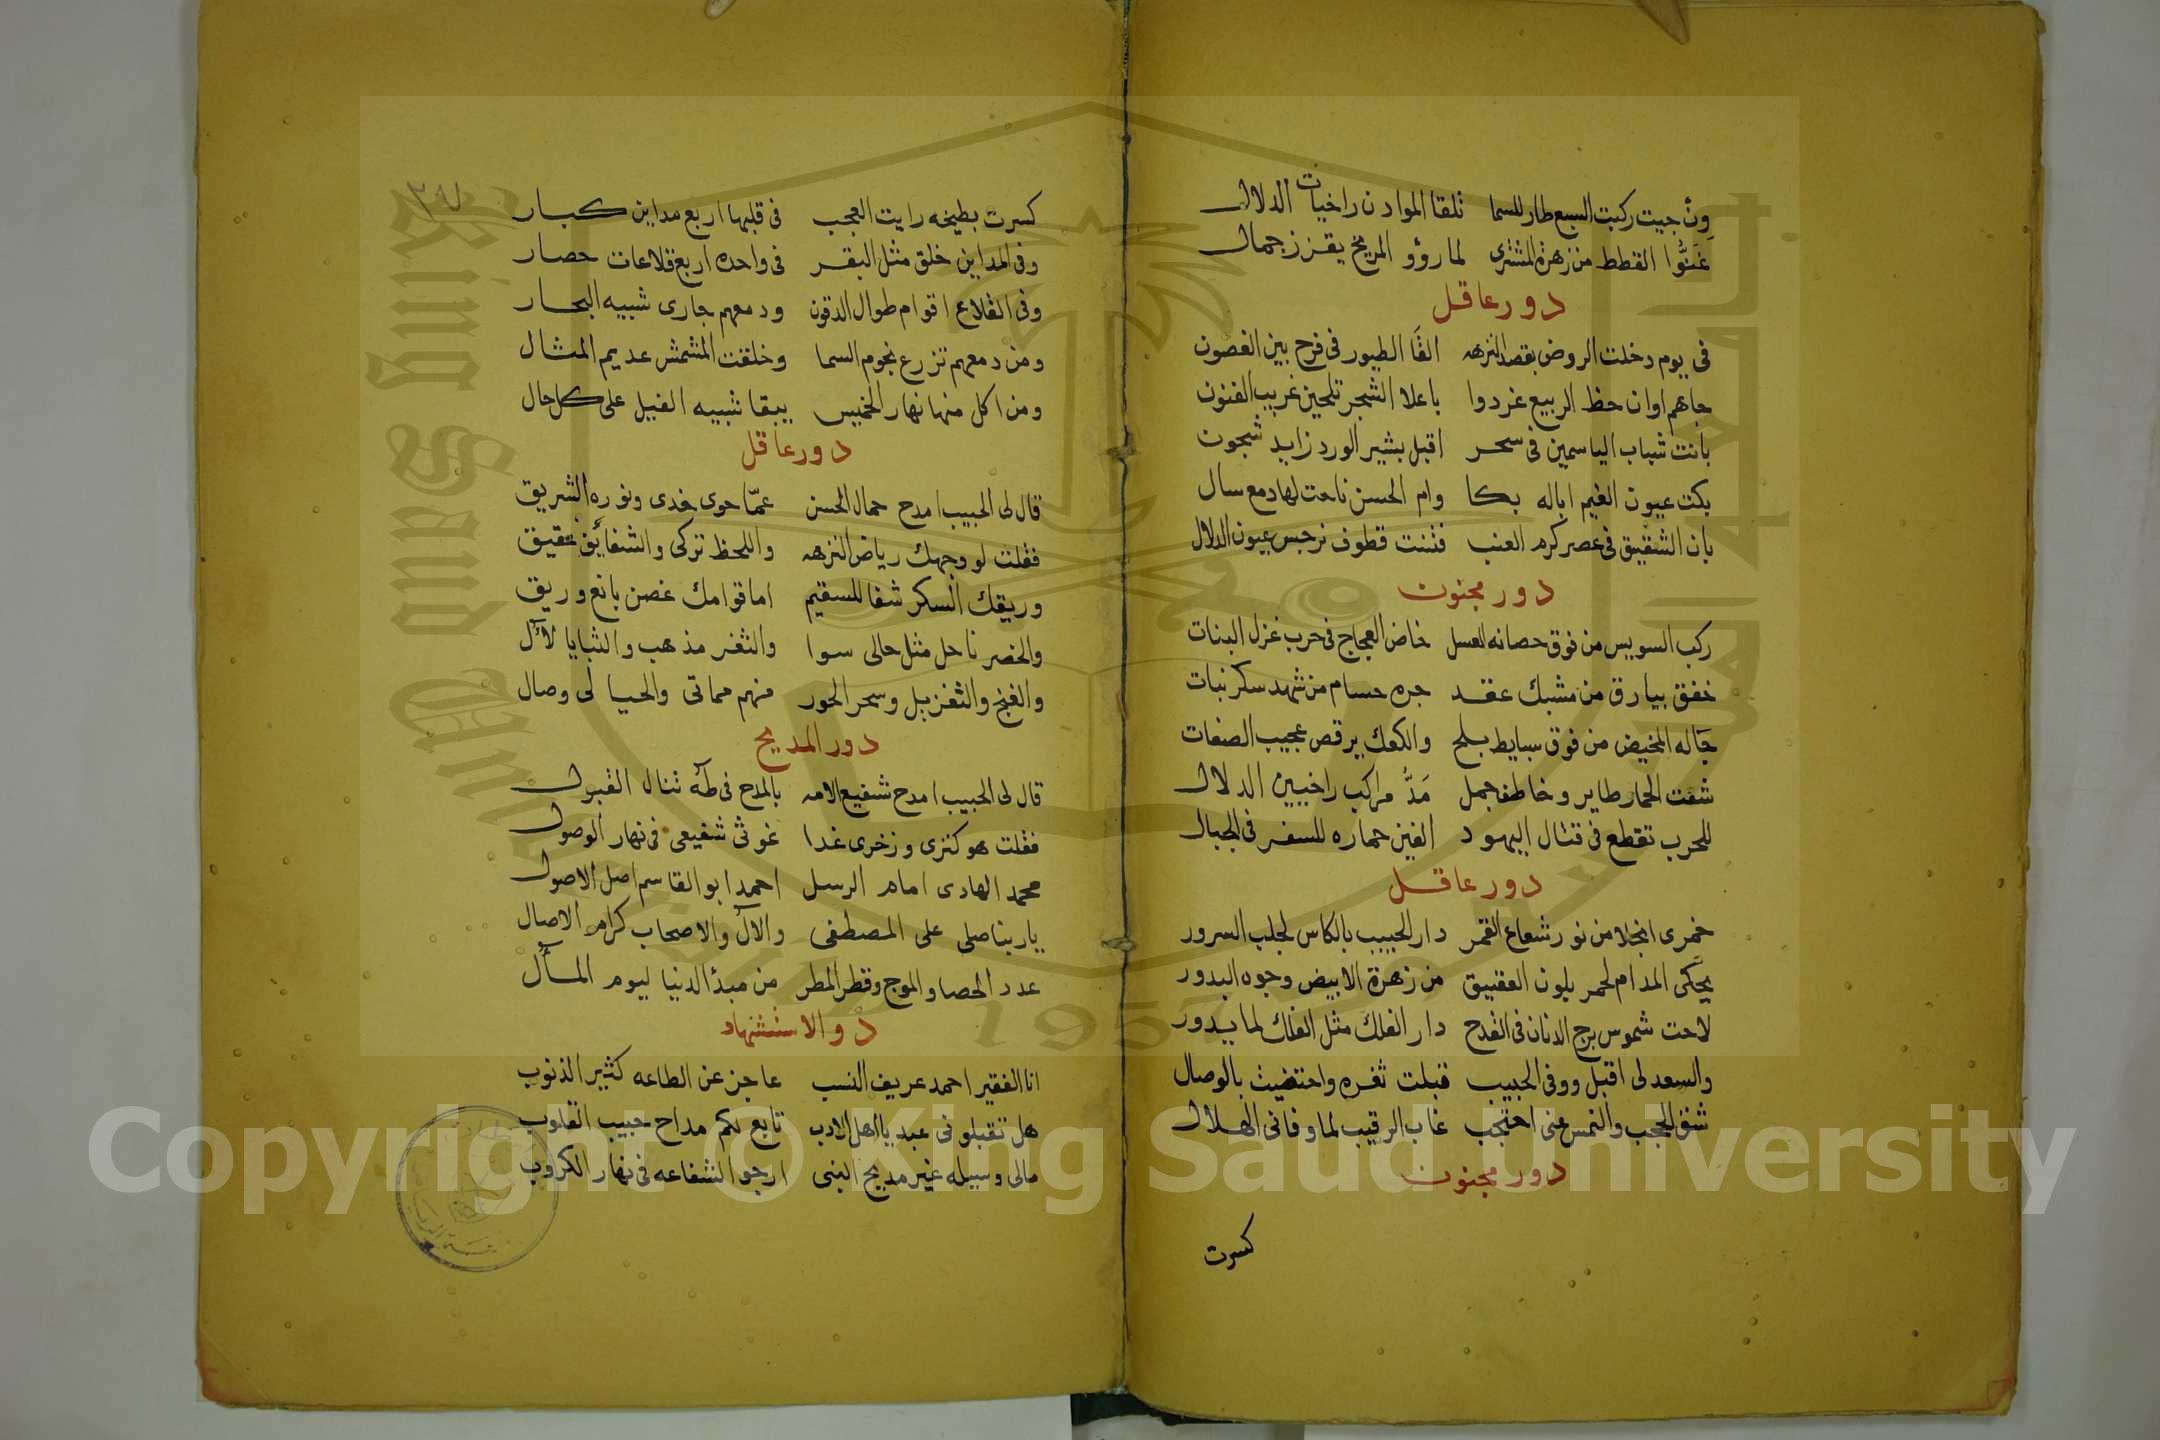 ون جيت ركبت السبع طار للسما تلقا الموادن راخيات الدلال
غنوا القطط من زهرة المشترى لما رؤو المريخ يقزز جمال
دور عاقل
فى يوم دخلت الروض بقصد النزهه القا الطيور فى فرح بين الغصون
جاهم اوان حظ الربيع غردوا باعلا الشجر تلحين غريب الفنون
بانت شباب الياسمين فى سحر اقبل بشير الورد زايد شجون
بكت عيون الغيم اباله بكا وام الحسن ناحت لها دمع سال
بان الشقيق فى عصر كرم العنب فتنت قطوف نرجس عيون الدلال
دور مجنون
ركب السويس من فوق حصانه العسل خاض العجاج فى حرب غزل البنات
خفق بيارق من مشبك عقد جره حسام من شهد سكر نبات
جاله المخيض من فوق سبايط بلح والكعك يرقص عجيب الصفات
شفت الحمار طاير وخاطف جمل مد مراكب راخيين الدلال
للحرب تقطع فى قتال اليهود الفين حماره للسفر فى الجبال
دور عاقل
خمرى انجلا من نور شعاع القمر دار الحبيب بالكاس لجلب السرور
يحكى المدام لحمر بلون العقيق من زهرة الابيض وجوه البدور
لاحت شموس برج الدنان فى القدح دار الفلك مثل الفلك لما يدور
والسعد لى اقبل ووفى الحبيب قبلت ثغره واحتضيت بالوصال
شق الحجب والنمس عنى احتجب غاب الرقيب لما وفانى الهلال
دور مجنون
كسرت
كسرت بطيخه رايت العجب فى قلبها اربع مداين كبار
وفى المداين خلق مثل البقر فى واحده اربع قلاعات حصار
وفى القلاع اقوام طوال الدقون ودمعهم جارى شبيه البحار
ومن دمعهم تزرع نجوم السما وخلقت المشمش عديم المثال
ومن اكل منها نهار الخميس يبقا شبيه الفيل على كل حال
دور عاقل
قال لى الحبيب امدح جمال الحسن عما حوى خدى ونوره الشريق
فقلت لو وجهك رياض النزهه واللحظ تركى والشفايق عقيق
وريقك السكر شفا للسقيم اما قوامك غصن يانع وريق
والخصر ناحل مثل حالى سوا والثغر مذهب والثنايا لآل
والغنج والثغزيل وسحر الحور منهم مماتى والحيا لى وصال
دور المديح
قال لى الحبيب امدح شفيع الامه بالمدح فى طه تنال القبول
فقلت هو كنزى وزخرى غدا غوثى شفيعى فى نهار الوصول
محمد الهادى امام الرسل احمد ابو القاسم اصل الاصول
ياربنا صلى على المصطفى والال والاصحاب كرام الاصال
عدد الحصا والموج وقطر المطر من مبدأ الدنيا ليوم المآل
دو الاستشهاد
انا الفقير احمد عريف النسب عاجز عن الطاعه كثير الذنوب
هل تقبلونى عبد يا اهل الادب تابع لكم مداح حبيب القلوب
مالى وسيله غير مديح النبى ارجو الشفاعه فى نهار الكروب
Copyright © King Saud University
King Saud University
1957